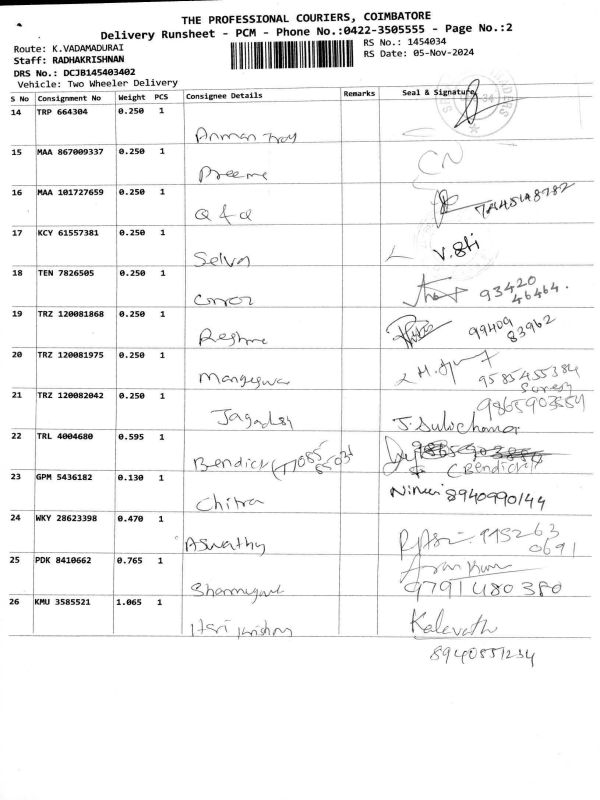 THE PROFESSIONAL COURIERS, COIMBATORE
Delivery Runsheet - PCM - Phone No.:0422-3505555 - Page No.:2
Route: K.VADAMADURAI
RS No.: 1454034
Staff: RADHAKRISHNAN
RS Date: 05-Nov-2024
DRS No.: DCJB145403402
Vehicle: Two Wheeler Delivery
S No Consignment No Weight PCS Consignee Details Remarks Seal & Signature
14 TRP 664304 0.250 1
15 MAA 867009337 0.250 1
CN
Preema
16 MAA 101727659 0.250 1
Q & Q
17 KCY 61557381 0.250 1
Selva
18 TEN 7826505 0.250 1
93420
46464.
19 TRZ 120081868 0.250 1
99409
83962
Reshma
20 TRZ 120081975 0.250 1
9585455384
21 TRZ 120082042 0.250 1
9865903554
Jagadesh J. Sulochana
22 TRL 4004680 0.595 1
Bendict C Bendict
23 GPM 5436182 0.130 1
8940990144
Chitra
24 WKY 28623398 0.470 1
Aswathy
25 PDK 8410662 0.765 1
Arun Kumar
9791480380
26 KMU 3585521 1.065 1
Hari Krishna
8940551234